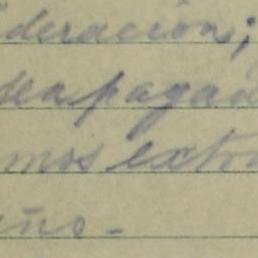 deración;
deapagad
mos extra
eño.-